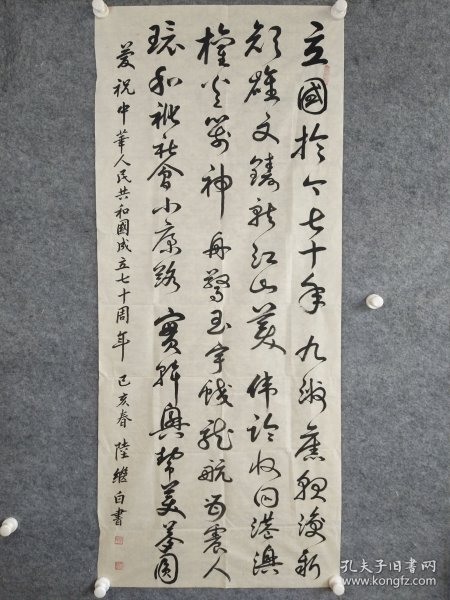 立國於今七十年九州舊貌煥新
顏雄文鑄就江山美偉論收回港澳
權火箭神舟驚玉宇蛟龍航母震人
環和谐社會小康路實幹興邦美夢圓
爱祝中華人民共和國成立七十周年 己亥春 陸继白書
孔夫子旧书网
www.kongfz.com